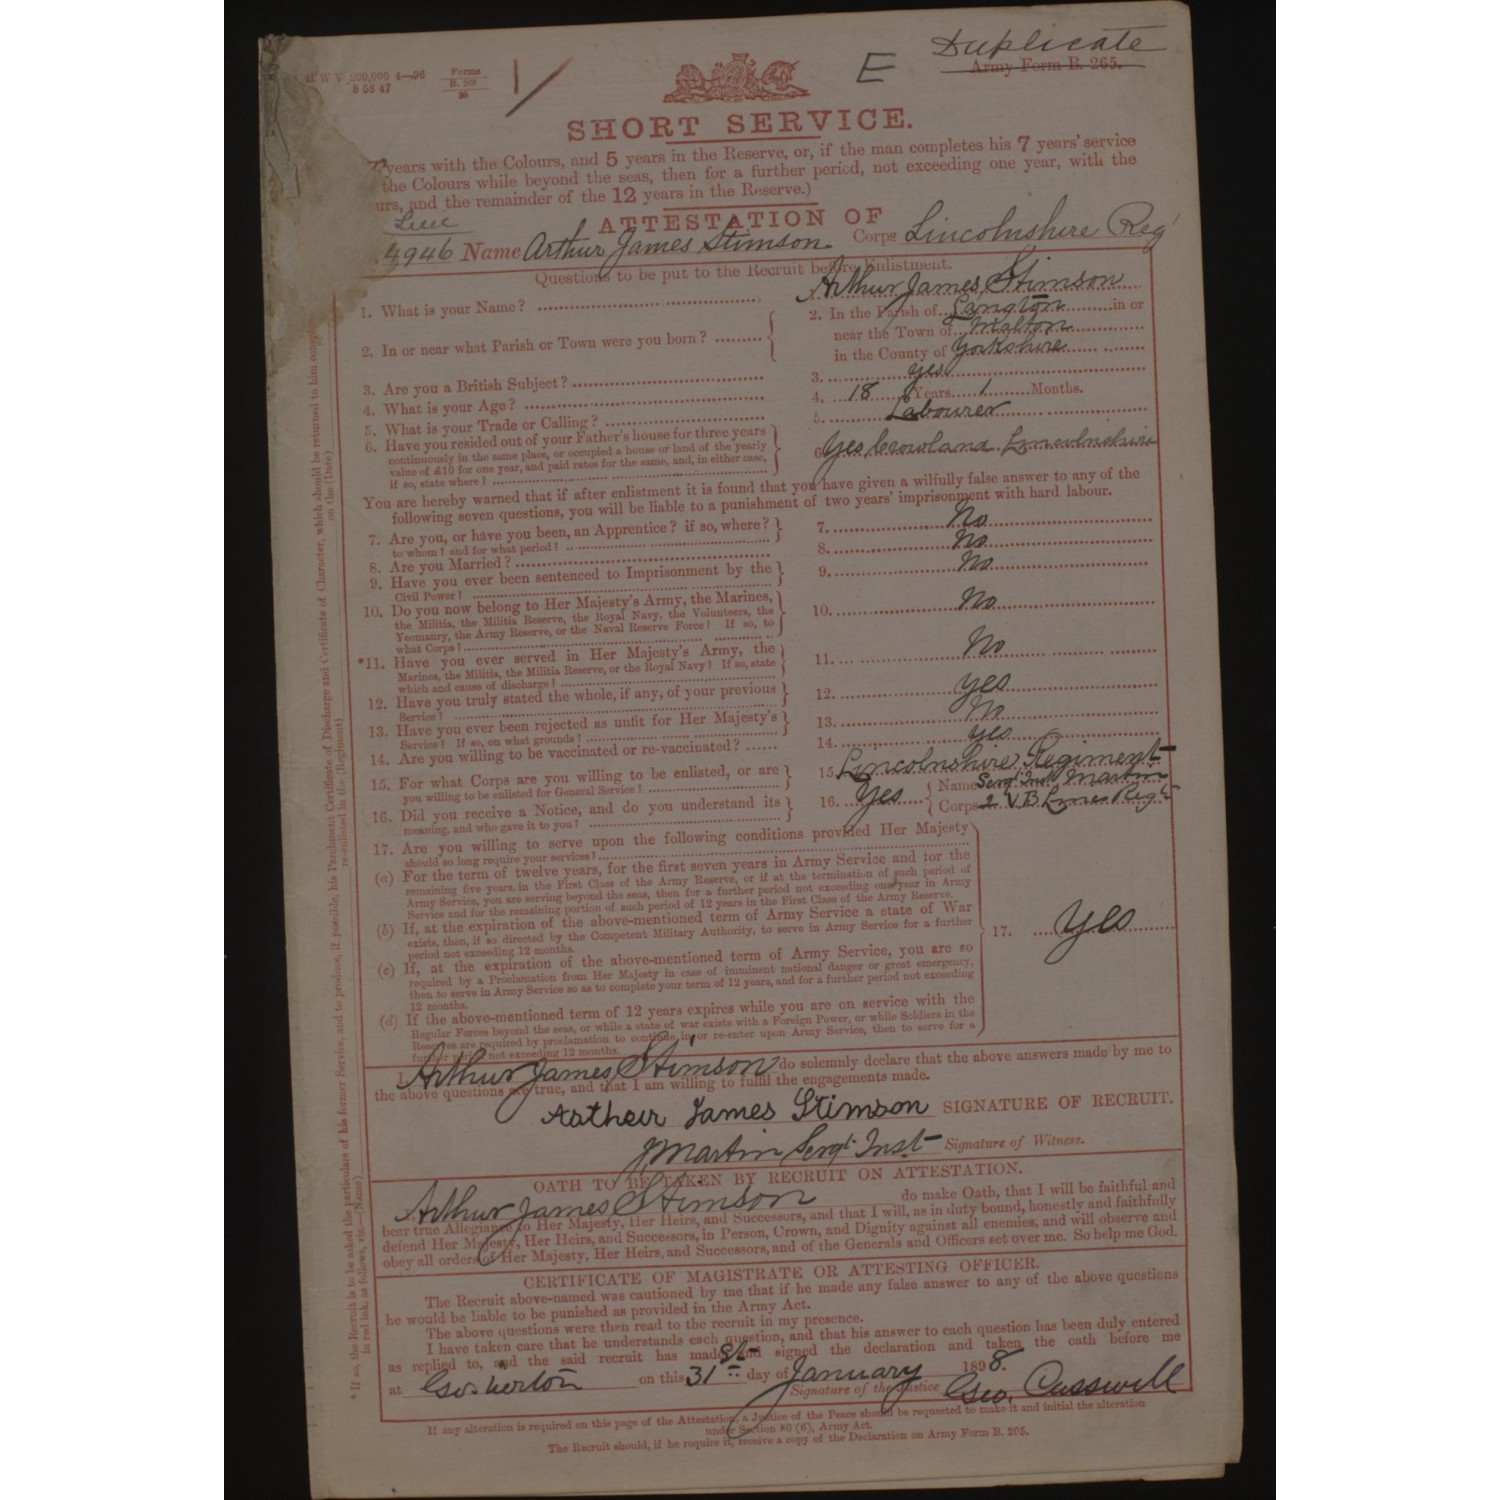 H W V 200,000 4—96 Forms
8 58 47 B. 265
Duplicate
E
Army Form B. 265.
SHORT SERVICE.
years with the Colours, and 5 years in the Reserve, or, if the man completes his 7 years' service
the Colours while beyond the seas, then for a further period, not exceeding one year, with the
urs, and the remainder of the 12 years in the Reserve.)
ATTESTATION OF
4946 Name Arthur James Stimson Corps Lincolnshire Reg
Questions to be put to the Recruit before Enlistment.
1. What is your Name? Arthur James Stimson
2. In or near what Parish or Town were you born? 2. In the Parish of Langton in or
near the Town of Malton
in the County of Yorkshire
3. Are you a British Subject? 3. yes
4. What is your Age? 4. 18 Years 1 Months.
5. What is your Trade or Calling? 5. Labourer
6. Have you resided out of your Father's house for three years
continuously in the same place, or occupied a house or land of the yearly
value of £10 for one year, and paid rates for the same, and, in either case,
if so, state where? 6 Yes Crowland Lincolnshire
You are hereby warned that if after enlistment it is found that you have given a wilfully false answer to any of the
following seven questions, you will be liable to a punishment of two years' imprisonment with hard labour.
7. Are you, or have you been, an Apprentice? if so, where? 7. No
to whom? and for what period?
8. Are you Married? 8. No
9. Have you ever been sentenced to Imprisonment by the 9. No
Civil Power?
10. Do you now belong to Her Majesty's Army, the Marines,
the Militia, the Militia Reserve, the Royal Navy, the Volunteers, the
Yeomanry, the Army Reserve, or the Naval Reserve Force? If so, to
what Corps? 10. No
*11. Have you ever served in Her Majesty's Army, the
Marines, the Militia, the Militia Reserve, or the Royal Navy? If so, state
which and cause of discharge? 11. No
12. Have you truly stated the whole, if any, of your previous
Service? 12. yes
13. Have you ever been rejected as unfit for Her Majesty's
Service? If so, on what grounds? 13. No
14. Are you willing to be vaccinated or re-vaccinated? 14. yes
15. For what Corps are you willing to be enlisted, or are
you willing to be enlisted for General Service? 15 Lincolnshire Regiment
16. Did you receive a Notice, and do you understand its
meaning, and who gave it to you? 16. Yes Name Sergt Inst Martin
Corps 2 VB Linc Regt
17. Are you willing to serve upon the following conditions provided Her Majesty
should so long require your services?
(a) For the term of twelve years, for the first seven years in Army Service and for the
remaining five years, in the First Class of the Army Reserve, or if at the termination of such period of
Army Service, you are serving beyond the seas, then for a further period not exceeding one year in Army
Service and for the remaining portion of such period of 12 years in the First Class of the Army Reserve.
(b) If, at the expiration of the above-mentioned term of Army Service a state of War
exists, then, if so directed by the Competent Military Authority, to serve in Army Service for a further
period not exceeding 12 months.
17. Yes
(c) If, at the expiration of the above-mentioned term of Army Service, you are so
required by a Proclamation from Her Majesty in case of imminent national danger or great emergency,
then to serve in Army Service so as to complete your term of 12 years, and for a further period not exceeding
12 months.
(d) If the above-mentioned term of 12 years expires while you are on service with the
Regular Forces beyond the seas, or while a state of war exists with a Foreign Power, or while Soldiers in the
Reserves are required by proclamation to continue in or re-enter upon Army Service, then to serve for a
further period not exceeding 12 months.
I Arthur James Stimson do solemnly declare that the above answers made by me to
the above questions are true, and that I am willing to fulfil the engagements made.
Artheur James Stimson SIGNATURE OF RECRUIT.
J Martin Sergt Inst Signature of Witness.
OATH TO BE TAKEN BY RECRUIT ON ATTESTATION.
Arthur James Stimson do make Oath, that I will be faithful and
bear true Allegiance to Her Majesty, Her Heirs, and Successors, and that I will, as in duty bound, honestly and faithfully
defend Her Majesty, Her Heirs, and Successors, in Person, Crown, and Dignity against all enemies, and will observe and
obey all orders of Her Majesty, Her Heirs, and Successors, and of the Generals and Officers set over me. So help me God.
CERTIFICATE OF MAGISTRATE OR ATTESTING OFFICER.
The Recruit above-named was cautioned by me that if he made any false answer to any of the above questions
he would be liable to be punished as provided in the Army Act.
The above questions were then read to the recruit in my presence.
I have taken care that he understands each question, and that his answer to each question has been duly entered
as replied to, and the said recruit has made and signed the declaration and taken the oath before me
at Gosberton on this 31st day of January 1898.
Signature of the Justice Geo. Cusswell
If any alteration is required on this page of the Attestation, a Justice of the Peace should be requested to make it and initial the alteration
under Section 80 (6), Army Act.
The Recruit should, if he require it, receive a copy of the Declaration on Army Form B. 265.
* If so, the Recruit is to be asked the particulars of his former Service, and to produce, if possible, his Parchment Certificate of Discharge and Certificate of Character, which should be returned to him
in red ink, as follows, viz.—(Name) re-enlisted in the (Regiment) on the (Date)